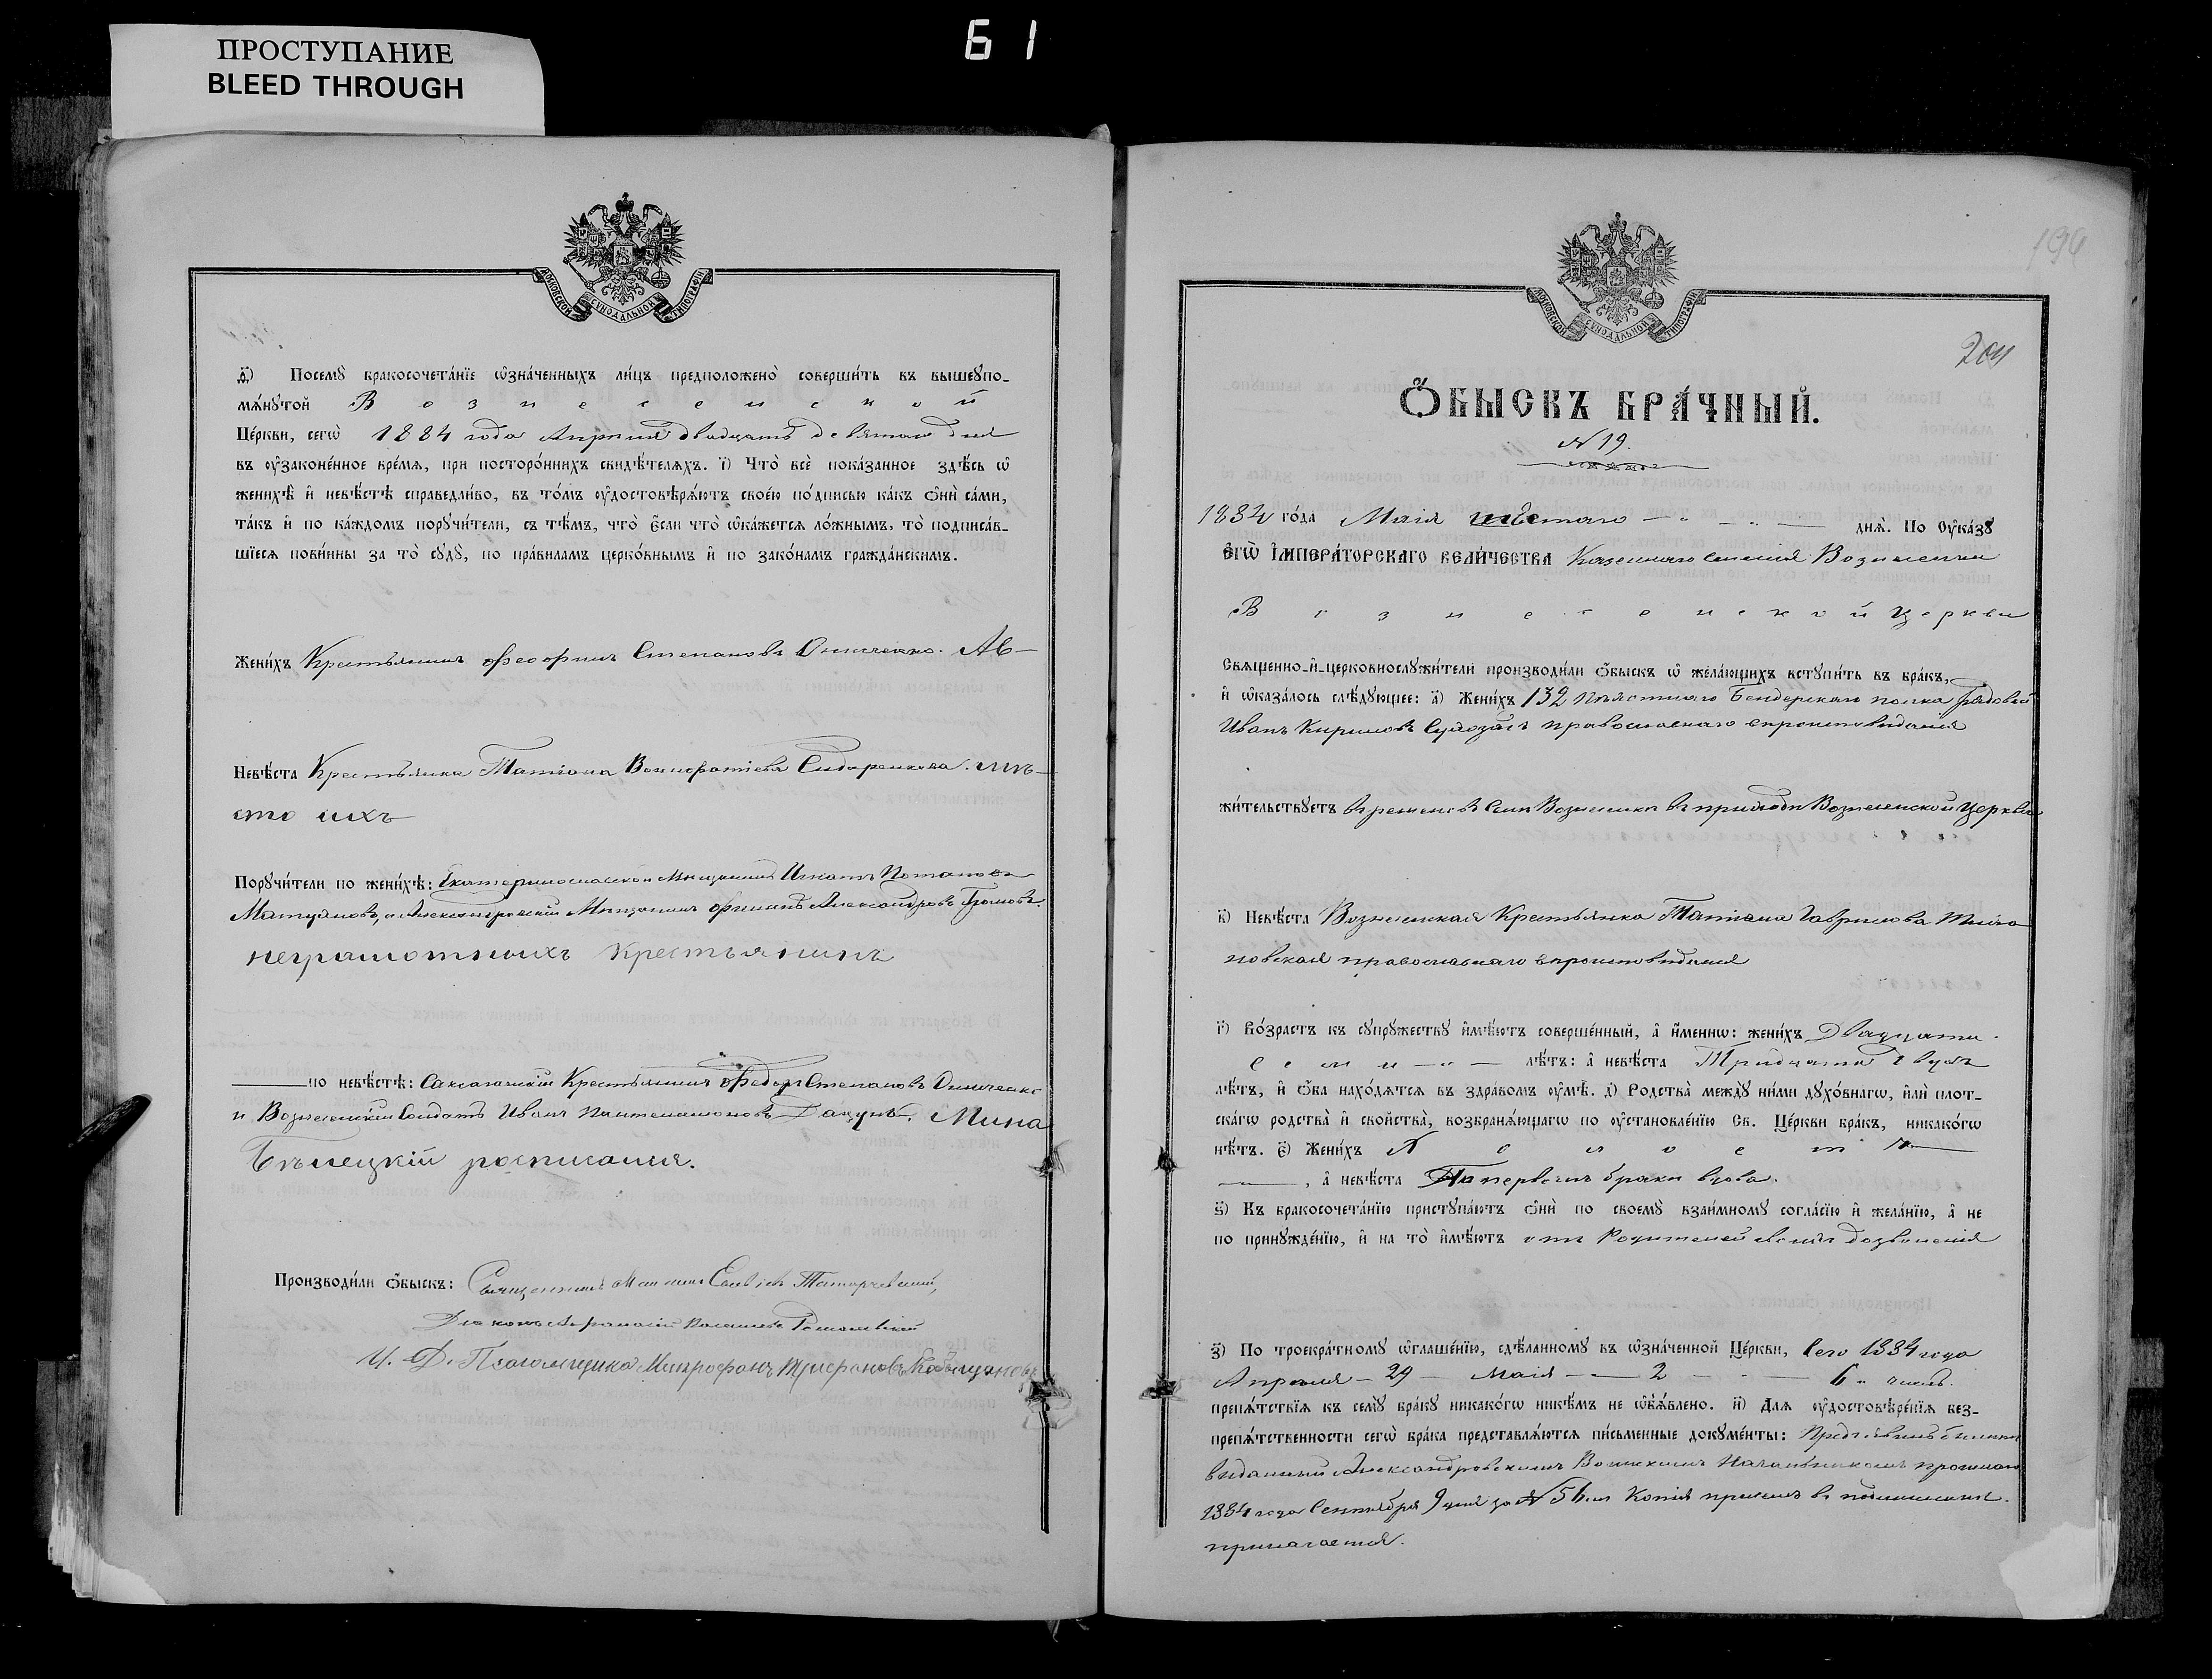 ПРОСТУПАНИЕ
BLEED THROUGH
61
МОСКОВСКОЙ СѴНОДАЛЬНОЙ ТИПОГРАФІИ
д҃) Посемꙋ̀ бракосочета́нїе ѡ҆зна́ченныхъ ли́цъ предположено̀ соверши́ть въ вышеꙋпо-
мѧ́нꙋтой Вознесенской
Це́ркви, сегѡ̀ 1884 года Апрѣля двадцать девятаго дня
въ ᲂу҆зако́не́нное вре́мѧ, при посторо́ннихъ свидѣ́телѧхъ. ї҃) Что̀ всѐ пока́занное здѣ́сь ѡ҆
женихѣ̀ и҆ невѣ́стѣ справедли́во, въ то́мъ ᲂу҆достовѣрѧ́ютъ свое́ю по́дписью ка́къ ѻ҆нѝ са́ми,
та́къ и҆ по ка́ждомъ порꙋчи́тели, съ тѣ́мъ, что̀ є҆́сли что̀ ѡ҆ка́жетсѧ ло́жнымъ, то̀ подписа́в-
шїесѧ пови́нны за то̀ сꙋдꙋ̀, по пра́виламъ церко́внымъ и҆ по зако́намъ гражда́нскимъ.
Жени́хъ Крестьянинъ Степановъ Ав-
Невѣ́ста Крестьянка Татіана Вонифатіева Сидоренкова. мѣ-
сто ихъ
Порꙋчи́тели по женихѣ̀: Мѣщанинъ Игнатъ Потаповъ
Александровскій Мѣщанинъ Александровъ Громовъ.
неграмотныхъ Крестьянинъ
по невѣ́стѣ: Саксаганскій Крестьянинъ Федоръ Степановъ
и Вознесенскій Солдатъ Иванъ Пантелеимоновъ Дацунъ, Мина
Бѣлецкій росписался.
Производи́ли ѻ҆́быскъ: Священникъ
Діаконъ
И. Д. Псаломщика Митрофанъ Трифановъ
МОСКОВСКОЙ СѴНОДАЛЬНОЙ ТИПОГРАФІИ
204
Ѻ҆́БЫСКЪ БРА́ЧНЫЙ.
N 19.
1884 го́да Маія шестаго днѧ̀. По Оу҆ка́зꙋ
Є҆ГѠ̀ І҆МПЕРА́ТОРСКАГѠ ВЕЛИ́ЧЕСТВА Казеннаго селенія Вознесенки
Вознесенской Церкви
Свѧщенно-и҆-церковнослꙋжи́тели производи́ли ѻ҆́быскъ ѡ҆ жела́ющихъ встꙋпи́ть въ бра́къ,
и҆ ѡ҆каза́лось слѣ́дꙋющее: а҃) Жени́хъ 132 Пѣхотнаго Бендерскаго полка рядовой
Иванъ Кириловъ православнаго вѣроисповѣданія
жи́тельствꙋетъ временно въ селѣ Вознесенкѣ въ приходѣ Вознесенской церкви
в҃) Невѣ́ста Вознесенская Крестьянка Татіана Гаврилова
новская православнаго вѣроисповѣданія
г҃) Во́зрастъ къ сꙋпрꙋ́жествꙋ и҆мѣ́ютъ соверше́нный, а҆ и҆́меннѡ: жени́хъ Двадцати
семи лѣ́тъ: а҆ невѣ́ста Тридцати двухъ
лѣ́тъ, и҆ ѻ҆́ба нахо́дѧтсѧ въ здра́вомъ ᲂу҆мѣ̀. д҃) Родства̀ междꙋ̀ ни́ми дꙋхо́внагѡ, и҆лѝ плот-
ска́гѡ родства̀ и҆ свойства̀, возбранѧ́ющагѡ по ᲂу҆становле́нїю Св. Це́ркви бра́къ, никако́гѡ
нѣ́тъ. є҃) Жени́хъ холостъ
, а҆ невѣ́ста По первомъ бракѣ вдова.
ѕ҃) Къ бракосочета́нїю пристꙋпа́ютъ ѻ҆нѝ по своемꙋ̀ взаи́мномꙋ согла́сїю и҆ жела́нїю, а҆ не
по принꙋжде́нїю, и҆ на то̀ и҆мѣ́ютъ отъ Родителей своихъ дозволенія
з҃) По троекра́тномꙋ ѡ҆глаше́нїю, сдѣ́ланномꙋ въ ѡ҆зна́ченной Це́ркви, сего 1884 года
Апрѣля 29 Маія 2 6 чиселъ.
препѧ́тствїѧ къ семꙋ̀ бра́кꙋ никако́гѡ никѣ́мъ не ѡ҆б̾ѧ́влено. и҃) Длѧ ᲂу҆достовѣре́нїѧ без-
препѧ́тственности сегѡ̀ бра́ка представлѧ́ютсѧ пи́сьменные докꙋме́нты: Предъявилъ билетъ
виданный Александровскимъ Воинскимъ Начальникомъ
1884 года Сентября 9 дня за N 56 Копія
прилагается.